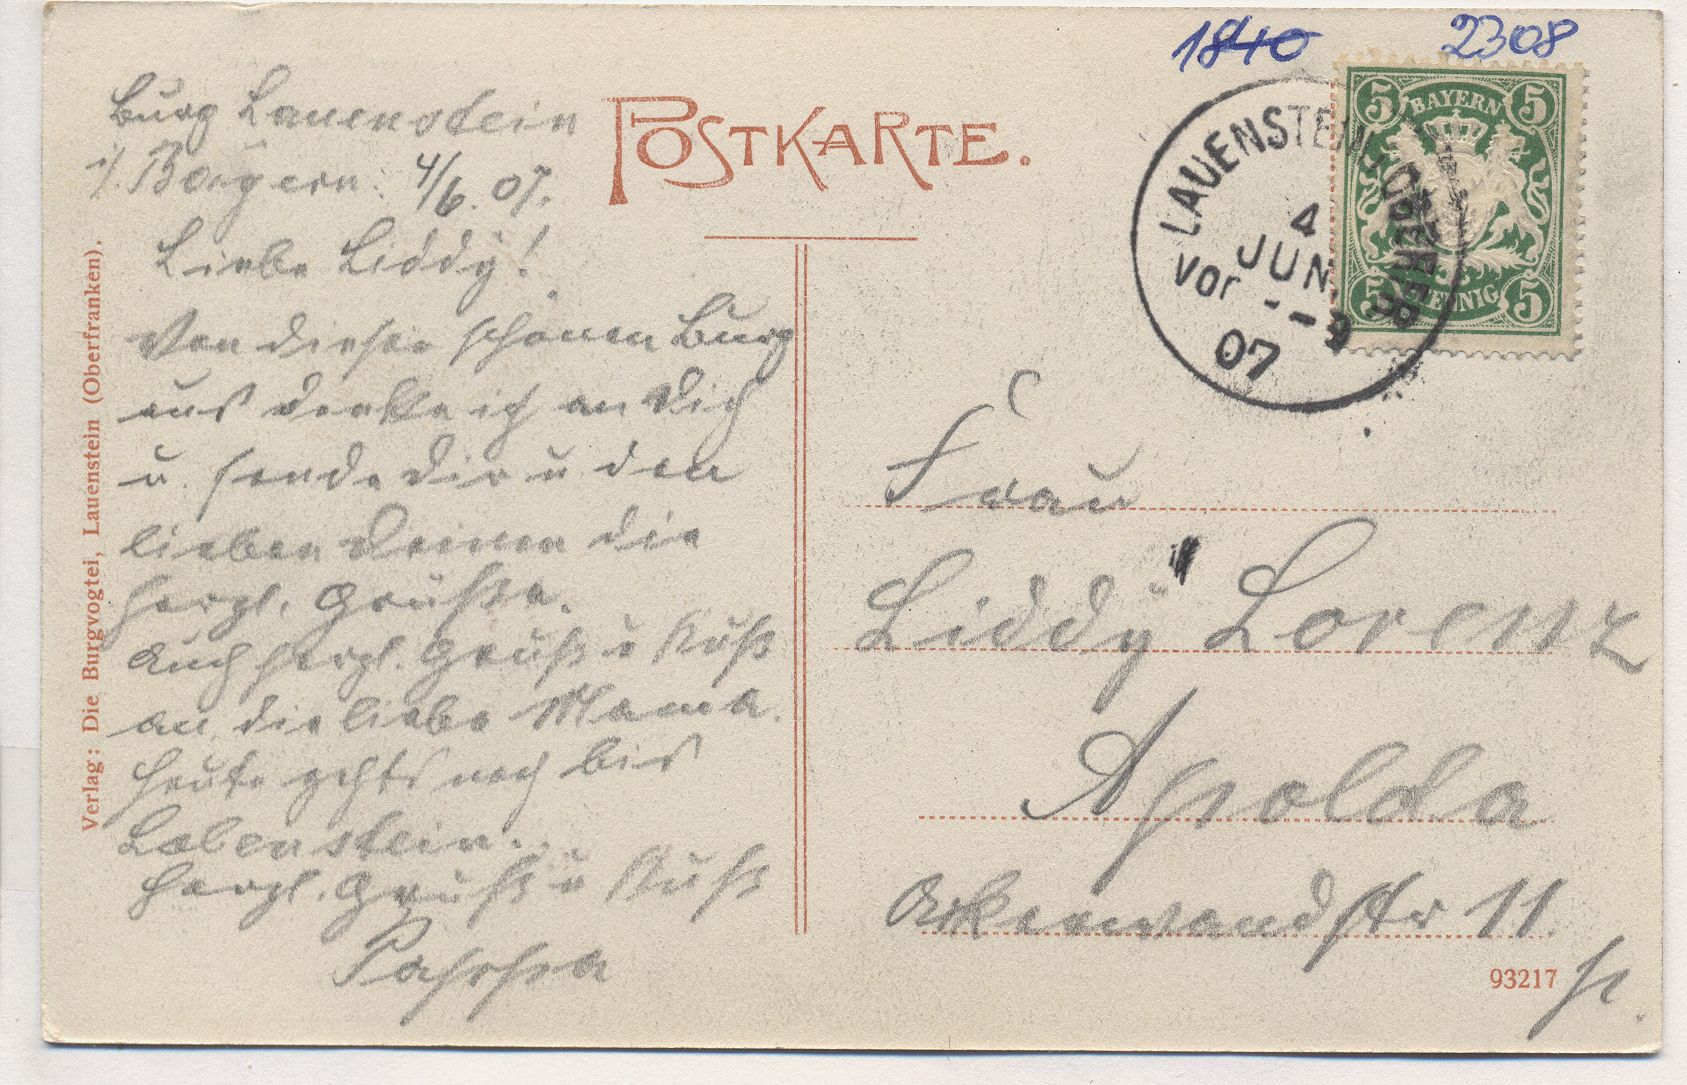 1840 2308
POSTKARTE.
BAYERN
5 5
5 PFENNIG 5
LAUENSTEIN-OBERFR
4
JUN.
Vor - - 9
07
Burg Lauenstein
i/. Bayern. 4/6. 07.
Liebe Liddy!
Von dieser schönen Burg
aus denke ich an Dich
u. sende Dir u den
lieben Deinen die
herzl. Grüße.
Auch herzl. Gruß u Kuß
an die liebe Mama.
Heute gehts noch bis
Lobenstein.
Herzl. Gruß u Kuß
Verlag: Die Burgvogtei, Lauenstein (Oberfranken).
Frau
Liddy Lorenz
Apolda
Ackerwandstr 11.
93217